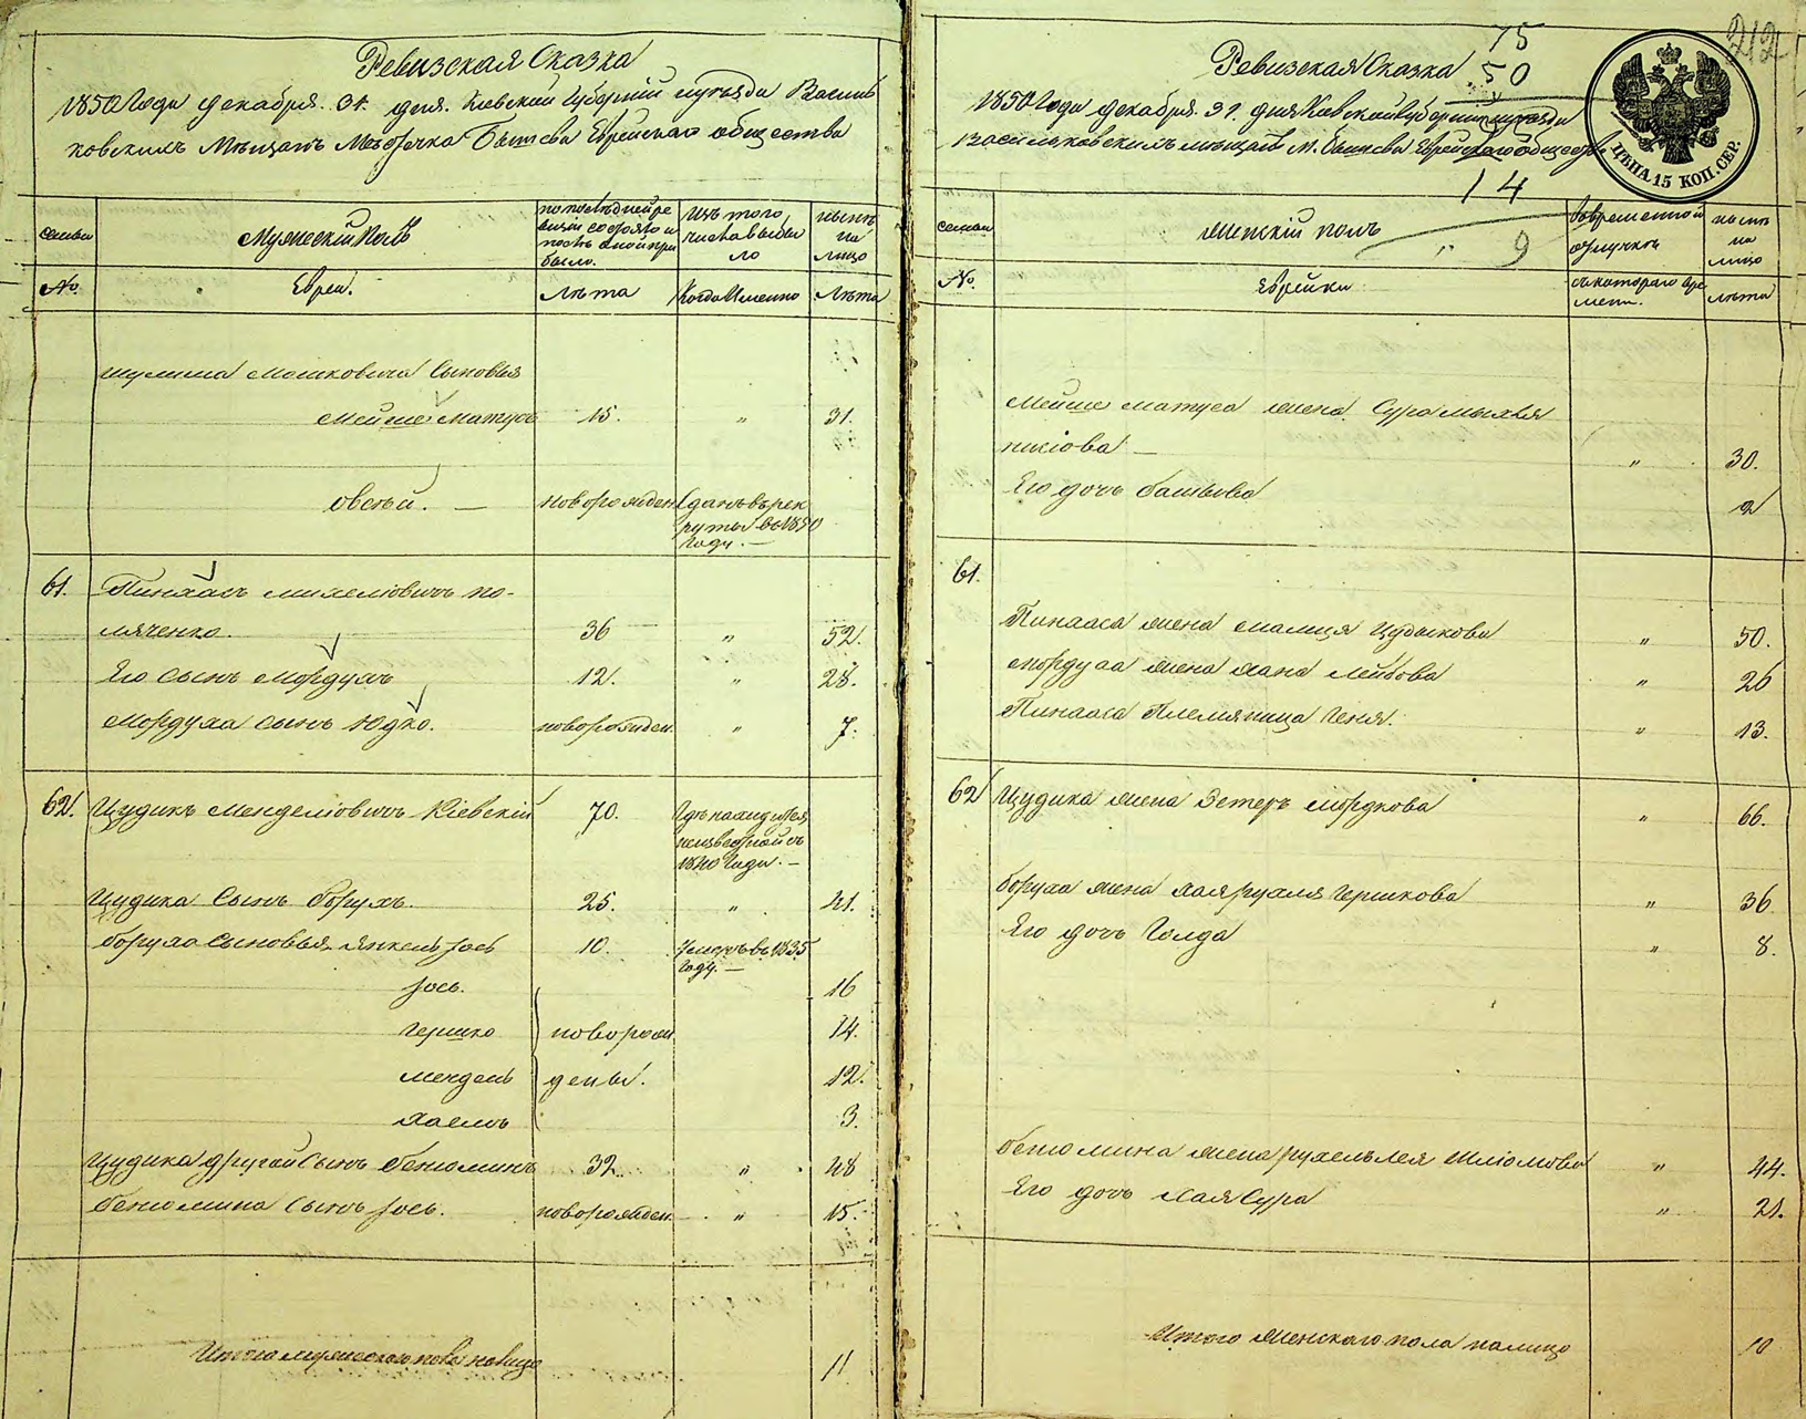 Ревизская Сказка
1850 Года декабря 31. дня. Киевской Губернии уезда Василь
ковскихъ Мещанъ Местечка Бышева Еврейскаго общества
семьи
Мужескій Полъ
по последней ре
визіи состояло и
после оной при
было.
Изъ того
числа выбы
ло
ныне
на
лицо
№.
Евреи.
Лета
Когда Именно
Лета
Шулима Мошковича Сыновья
Мейше Матусъ 15. " 31.
Овсей. — новорожден. Сданъ въ рек
руты въ 1850
Году. —
61. Пинхасъ Михелiовичъ По-
ляченко. 36 " 52.
Его Сынъ Мордухъ 12. " 28.
Мордуха сынъ Юдко. новорожден. " 7.
62. Цудикъ Менделiовичъ Кіевскій 70. Где находится
неизвестно съ
1840 Года. —
Цудика Сынъ Борухъ. 25. " 41.
Боруха Сыновья Янкель Іось 10. Умеръ въ 1835
Году. —
Іось. 16
Гершко новорож 14.
Мендель дены. 12.
Хаемъ 3.
Цудика другой Сынъ Беніоминъ 32. " 48
Беніомина Сынъ Іось. новорожден. " 15.
Итого мужескаго пола на лицо 11
212
Ревизская Сказка
15
50
1850 Года декабря. 31. дня Киевской Губерніи уезда
Васильковскихъ мещанъ М. Бышева Еврейскаго общества
14
9
ЦѢНА 15 КОП. СЕР.
семьи
Женскій полъ
Во временной
отлучке
ныне
на
лицо
№.
Еврейки
съ котораго вре
мени.
лета
Мейше Матуса жена Сура Мыхля
" 30.
Его дочь Башева 2
61.
Пинхаса жена Малиця Цудыкова " 50.
Мордуха жена Хана Лейбова " 26
Пинхаса Племяница Геня. " 13.
62 Цудика жена Эстеръ Мордкова " 66.
Боруха жена Хая Рухля Гершкова " 36
Его дочь Голда " 8.
Беніомина жена Рухель Лея Шліомова " 44.
Его дочь Хая Сура " 21.
Итого женскаго пола на лицо 10